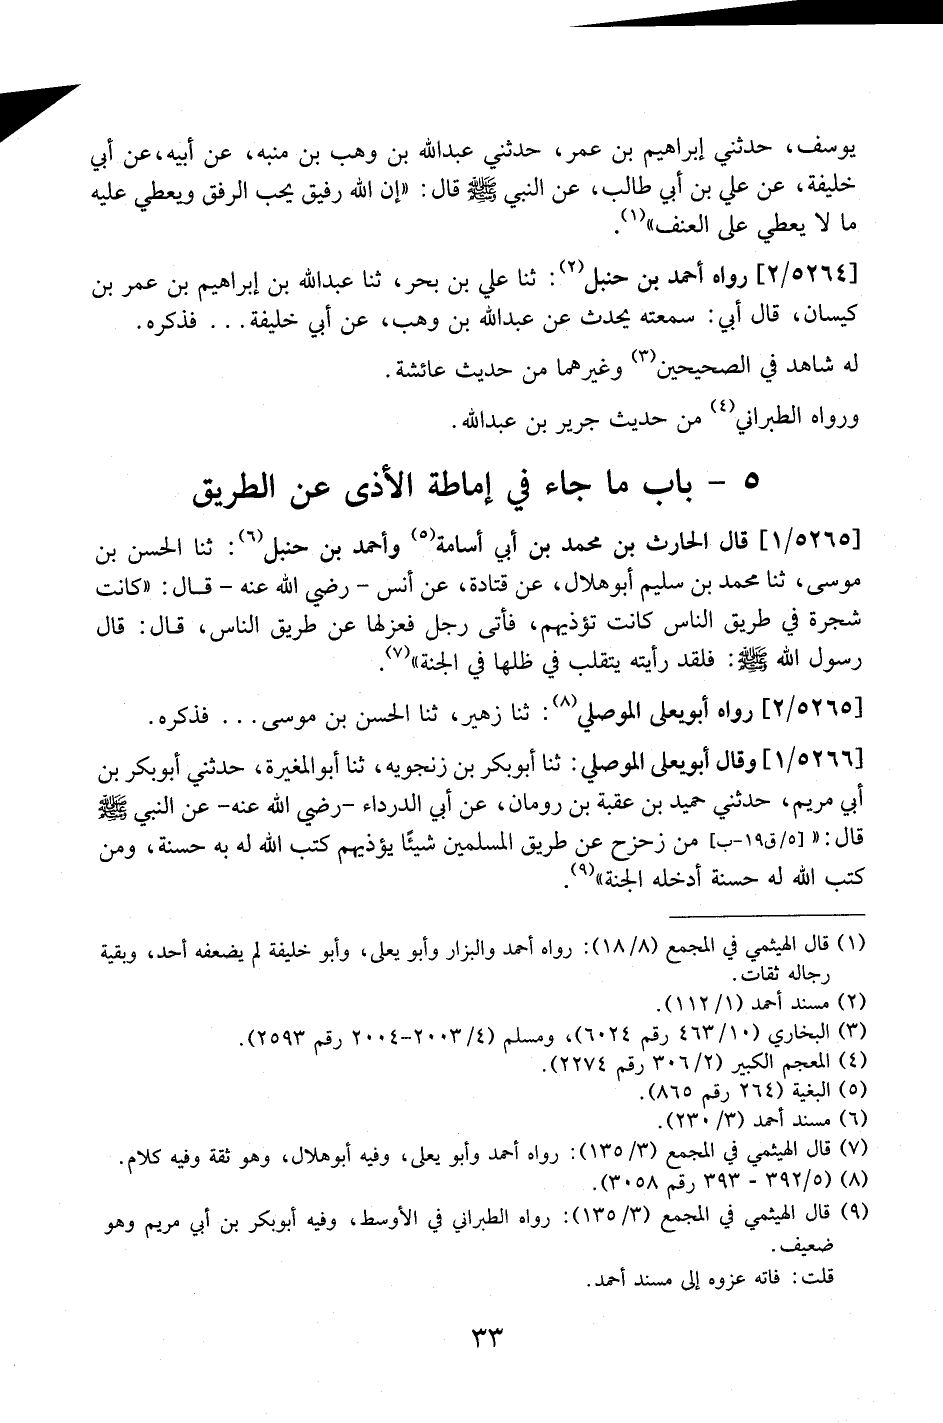 يوسف، حدثني إبراهيم بن عمر، حدثني عبدالله بن وهب بن منبه، عن أبيه،عن أبي
خليفة، عن علي بن أبي طالب، عن النبي ﷺ قال: «إن الله رفيق يحب الرفق ويعطي عليه
ما لا يعطي على العنف»(١).
[٢/٥٢٦٤] رواه أحمد بن حنبل(٢): ثنا علي بن بحر، ثنا عبدالله بن إبراهيم بن عمر بن
كيسان، قال أبي: سمعته يحدث عن عبدالله بن وهب، عن أبي خليفة... فذكره.
له شاهد في الصحيحين(٣) وغيرهما من حديث عائشة.
ورواه الطبراني(٤) من حديث جرير بن عبدالله.
٥ – باب ما جاء في إماطة الأذى عن الطريق
[١/٥٢٦٥] قال الحارث بن محمد بن أبي أسامة(٥) وأحمد بن حنبل(٦): ثنا الحسن بن
موسى، ثنا محمد بن سليم أبوهلال، عن قتادة، عن أنس – رضي الله عنه – قـال: «كانت
شجرة في طريق الناس كانت تؤذيهم، فأتى رجل فعزلها عن طريق الناس، قـال: قال
رسول الله ﷺ: فلقد رأيته يتقلب في ظلها في الجنة»(٧).
[٢/٥٢٦٥] رواه أبويعلى الموصلي(٨): ثنا زهير، ثنا الحسن بن موسى... فذكره.
[١/٥٢٦٦] وقال أبويعلى الموصلي: ثنا أبوبكر بن زنجويه، ثنا أبوالمغيرة، حدثني أبوبكر بن
أبي مريم، حدثني حميد بن عقبة بن رومان، عن أبي الدرداء –رضي الله عنه– عن النبي ﷺ
قال: « [٥/ق١٩-ب] من زحزح عن طريق المسلمين شيئًا يؤذيهم كتب الله له به حسنة، ومن
كتب الله له حسنة أدخله الجنة»(٩).
(١) قال الهيثمي في المجمع (١٨/٨): رواه أحمد والبزار وأبو يعلى، وأبو خليفة لم يضعفه أحد، وبقية
رجاله ثقات.
(٢) مسند أحمد (١١٢/١).
(٣) البخاري (٤٦٣/١٠ رقم ٦٠٢٤)، ومسلم (٢٠٠٣/٤-٢٠٠٤ رقم ٢٥٩٣).
(٤) المعجم الكبير (٣٠٦/٢ رقم ٢٢٧٤).
(٥) البغية (٢٦٤ رقم ٨٦٥).
(٦) مسند أحمد (٢٣٠/٣).
(٧) قال الهيثمي في المجمع (١٣٥/٣): رواه أحمد وأبو يعلى، وفيه أبوهلال، وهو ثقة وفيه كلام.
(٨) (٣٩٢/٥ - ٣٩٣ رقم ٣٠٥٨).
(٩) قال الهيثمي في المجمع (١٣٥/٣): رواه الطبراني في الأوسط، وفيه أبوبكر بن أبي مريم وهو
ضعيف.
قلت: فاته عزوه إلى مسند أحمد.
٣٣